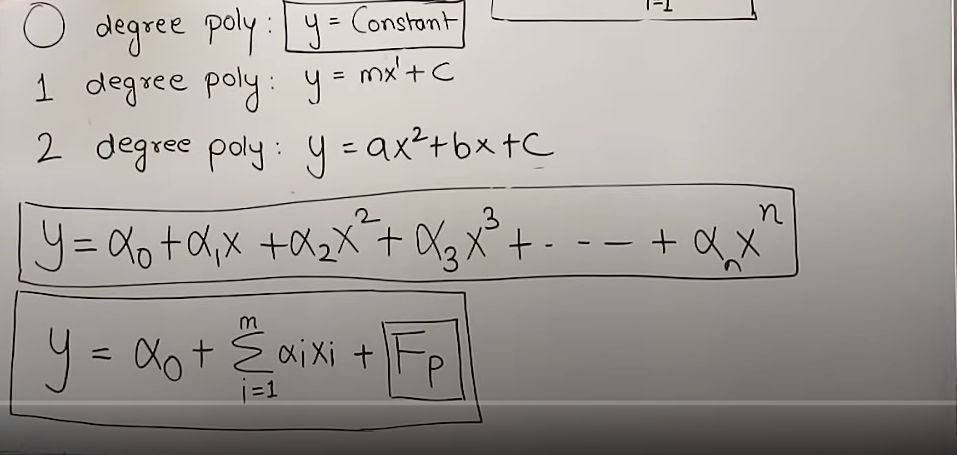 0 degree poly: y = Constant
i=1
1 degree poly: y = mx¹ + C
2 degree poly: y = ax² + bx + C
y = α₀ + α₁x + α₂x² + α₃x³ + - - - - + αₙxⁿ
y = α₀ + Σ αixi + Fp
m
i=1